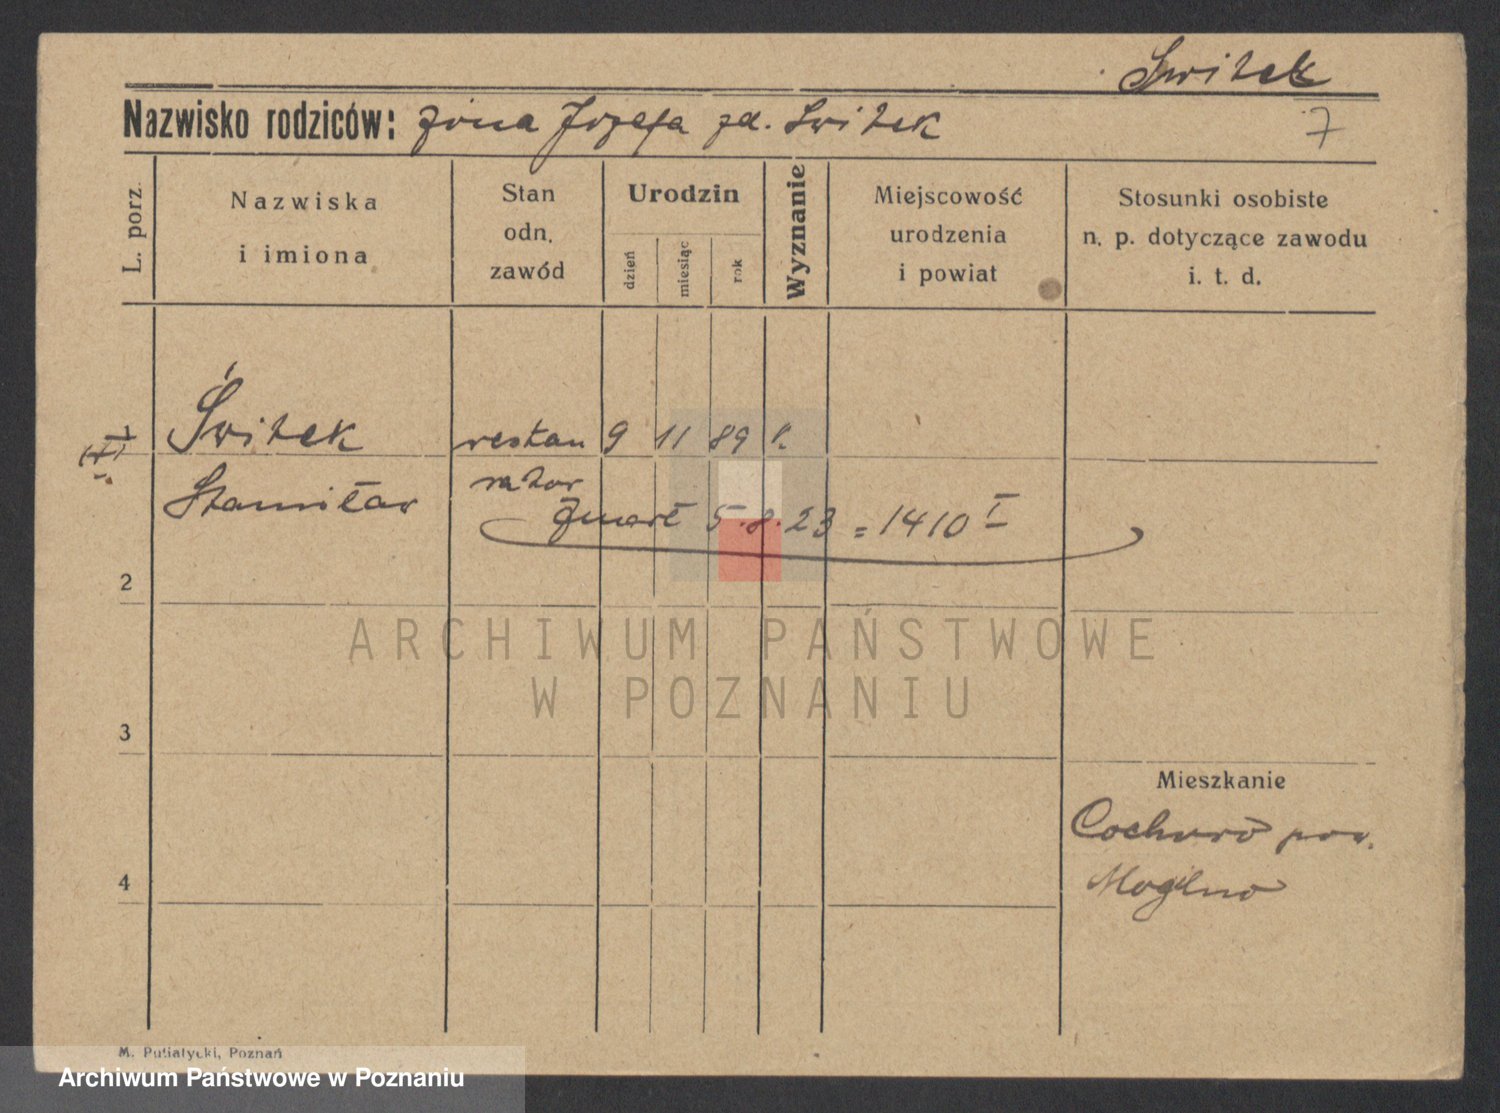 Switek
Nazwisko rodziców: żona Józefa zd. Switek
7
L. porz.
Nazwiska
i imiona
Stan
odn.
zawód
Urodzin
dzień
miesiąc
rok
Wyznanie
Miejscowość
urodzenia
i powiat
Stosunki osobiste
n. p. dotyczące zawodu
i. t. d.
Świtek restau 9 11 89
Stanisław rator
Zmarł 5.8.23 = 1410 I
2
ARCHIWUM PAŃSTWOWE
W POZNANIU
3
Mieszkanie
pow.
Mogilno
4
M. Putiatycki, Poznań
Archiwum Państwowe w Poznaniu